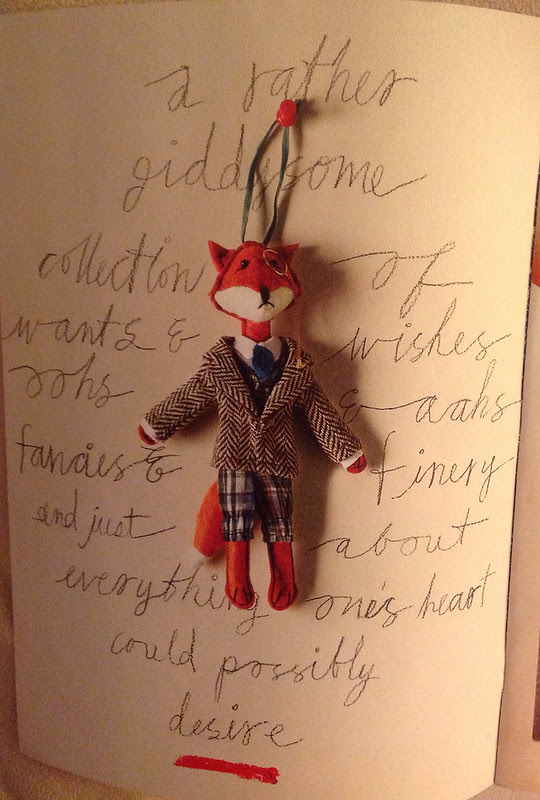 a rather
giddysome
collection of
wants & wishes
oohs & aahs
fancies & finery
and just about
everything one's heart
could possibly
desire